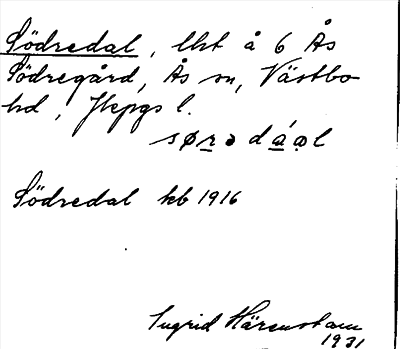 Södredal, lht å 6 Ås
Södregård, Ås sn, Västbo
hd, Jkpgs l.
sørə dáɷl
Södredal kb 1916
Ingrid Härenstam
1931